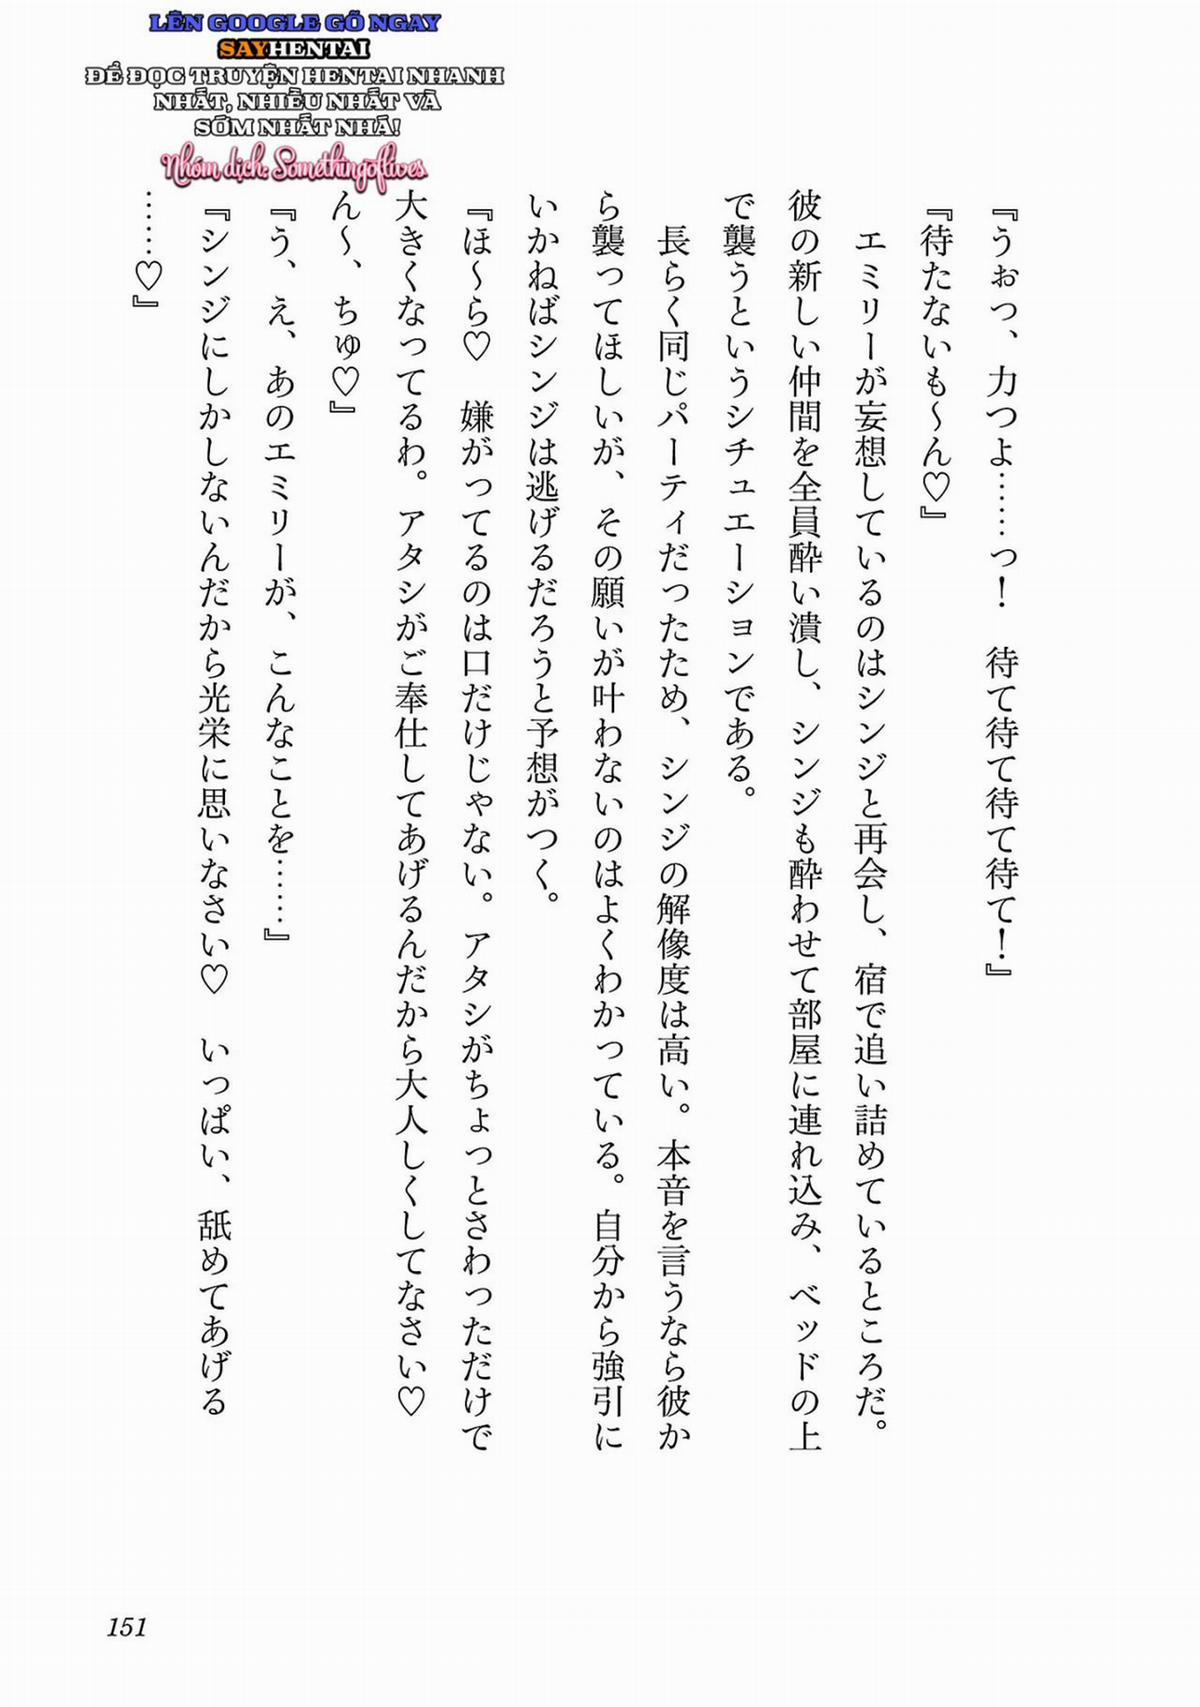 LÊN GOOGLE GÕ NGAY
SAYHENTAI
ĐỂ ĐỌC TRUYỆN HENTAI NHANH
NHẤT, NHIỀU NHẤT VÀ
SỚM NHẤT NHÁ!
Nhóm dịch: Somethingoflives
『うぉっ、力つよ……っ！　待て待て待て待て！』
『待たないも〜ん♡』
　エミリーが妄想しているのはシンジと再会し、宿で追い詰めているところだ。
彼の新しい仲間を全員酔い潰し、シンジも酔わせて部屋に連れ込み、ベッドの上
で襲うというシチュエーションである。
　長らく同じパーティだったため、シンジの解像度は高い。本音を言うなら彼か
ら襲ってほしいが、その願いが叶わないのはよくわかっている。自分から強引に
いかねばシンジは逃げるだろうと予想がつく。
『ほ〜ら♡　嫌がってるのは口だけじゃない。アタシがちょっとさわっただけで
大きくなってるわ。アタシがご奉仕してあげるんだから大人しくしてなさい♡
ん〜、ちゅ♡』
『う、え、あのエミリーが、こんなことを……』
『シンジにしかしないんだから光栄に思いなさい♡　いっぱい、舐めてあげる
……♡』
151